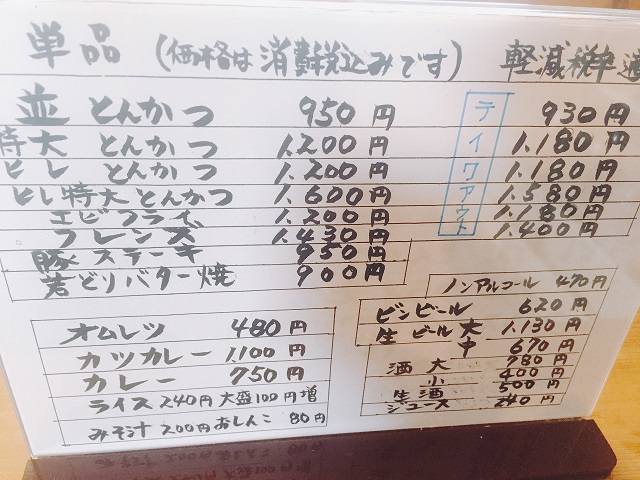 単品 (価格は消費税込みです) 軽減税率適
並 とんかつ 950円 930円
特大 とんかつ 1,200円 1,180円
ヒレ とんかつ 1,200円 1,180円
ヒレ特大とんかつ 1,600円 1,580円
エビフライ 1,200円 1,180円
フレンズ 1,430円 1,400円
テイクアウト
豚ステーキ 950円
若どりバター焼 900円
オムレツ 480円
カツカレー 1,100円
カレー 750円
ライス240円大盛100円増
みそ汁200円おしんこ 80円
ノンアルコール 470円
ビンビール 620円
生ビール大 1,130円
中 670円
酒大 780円
小 400円
生酒 500円
ジュース 240円